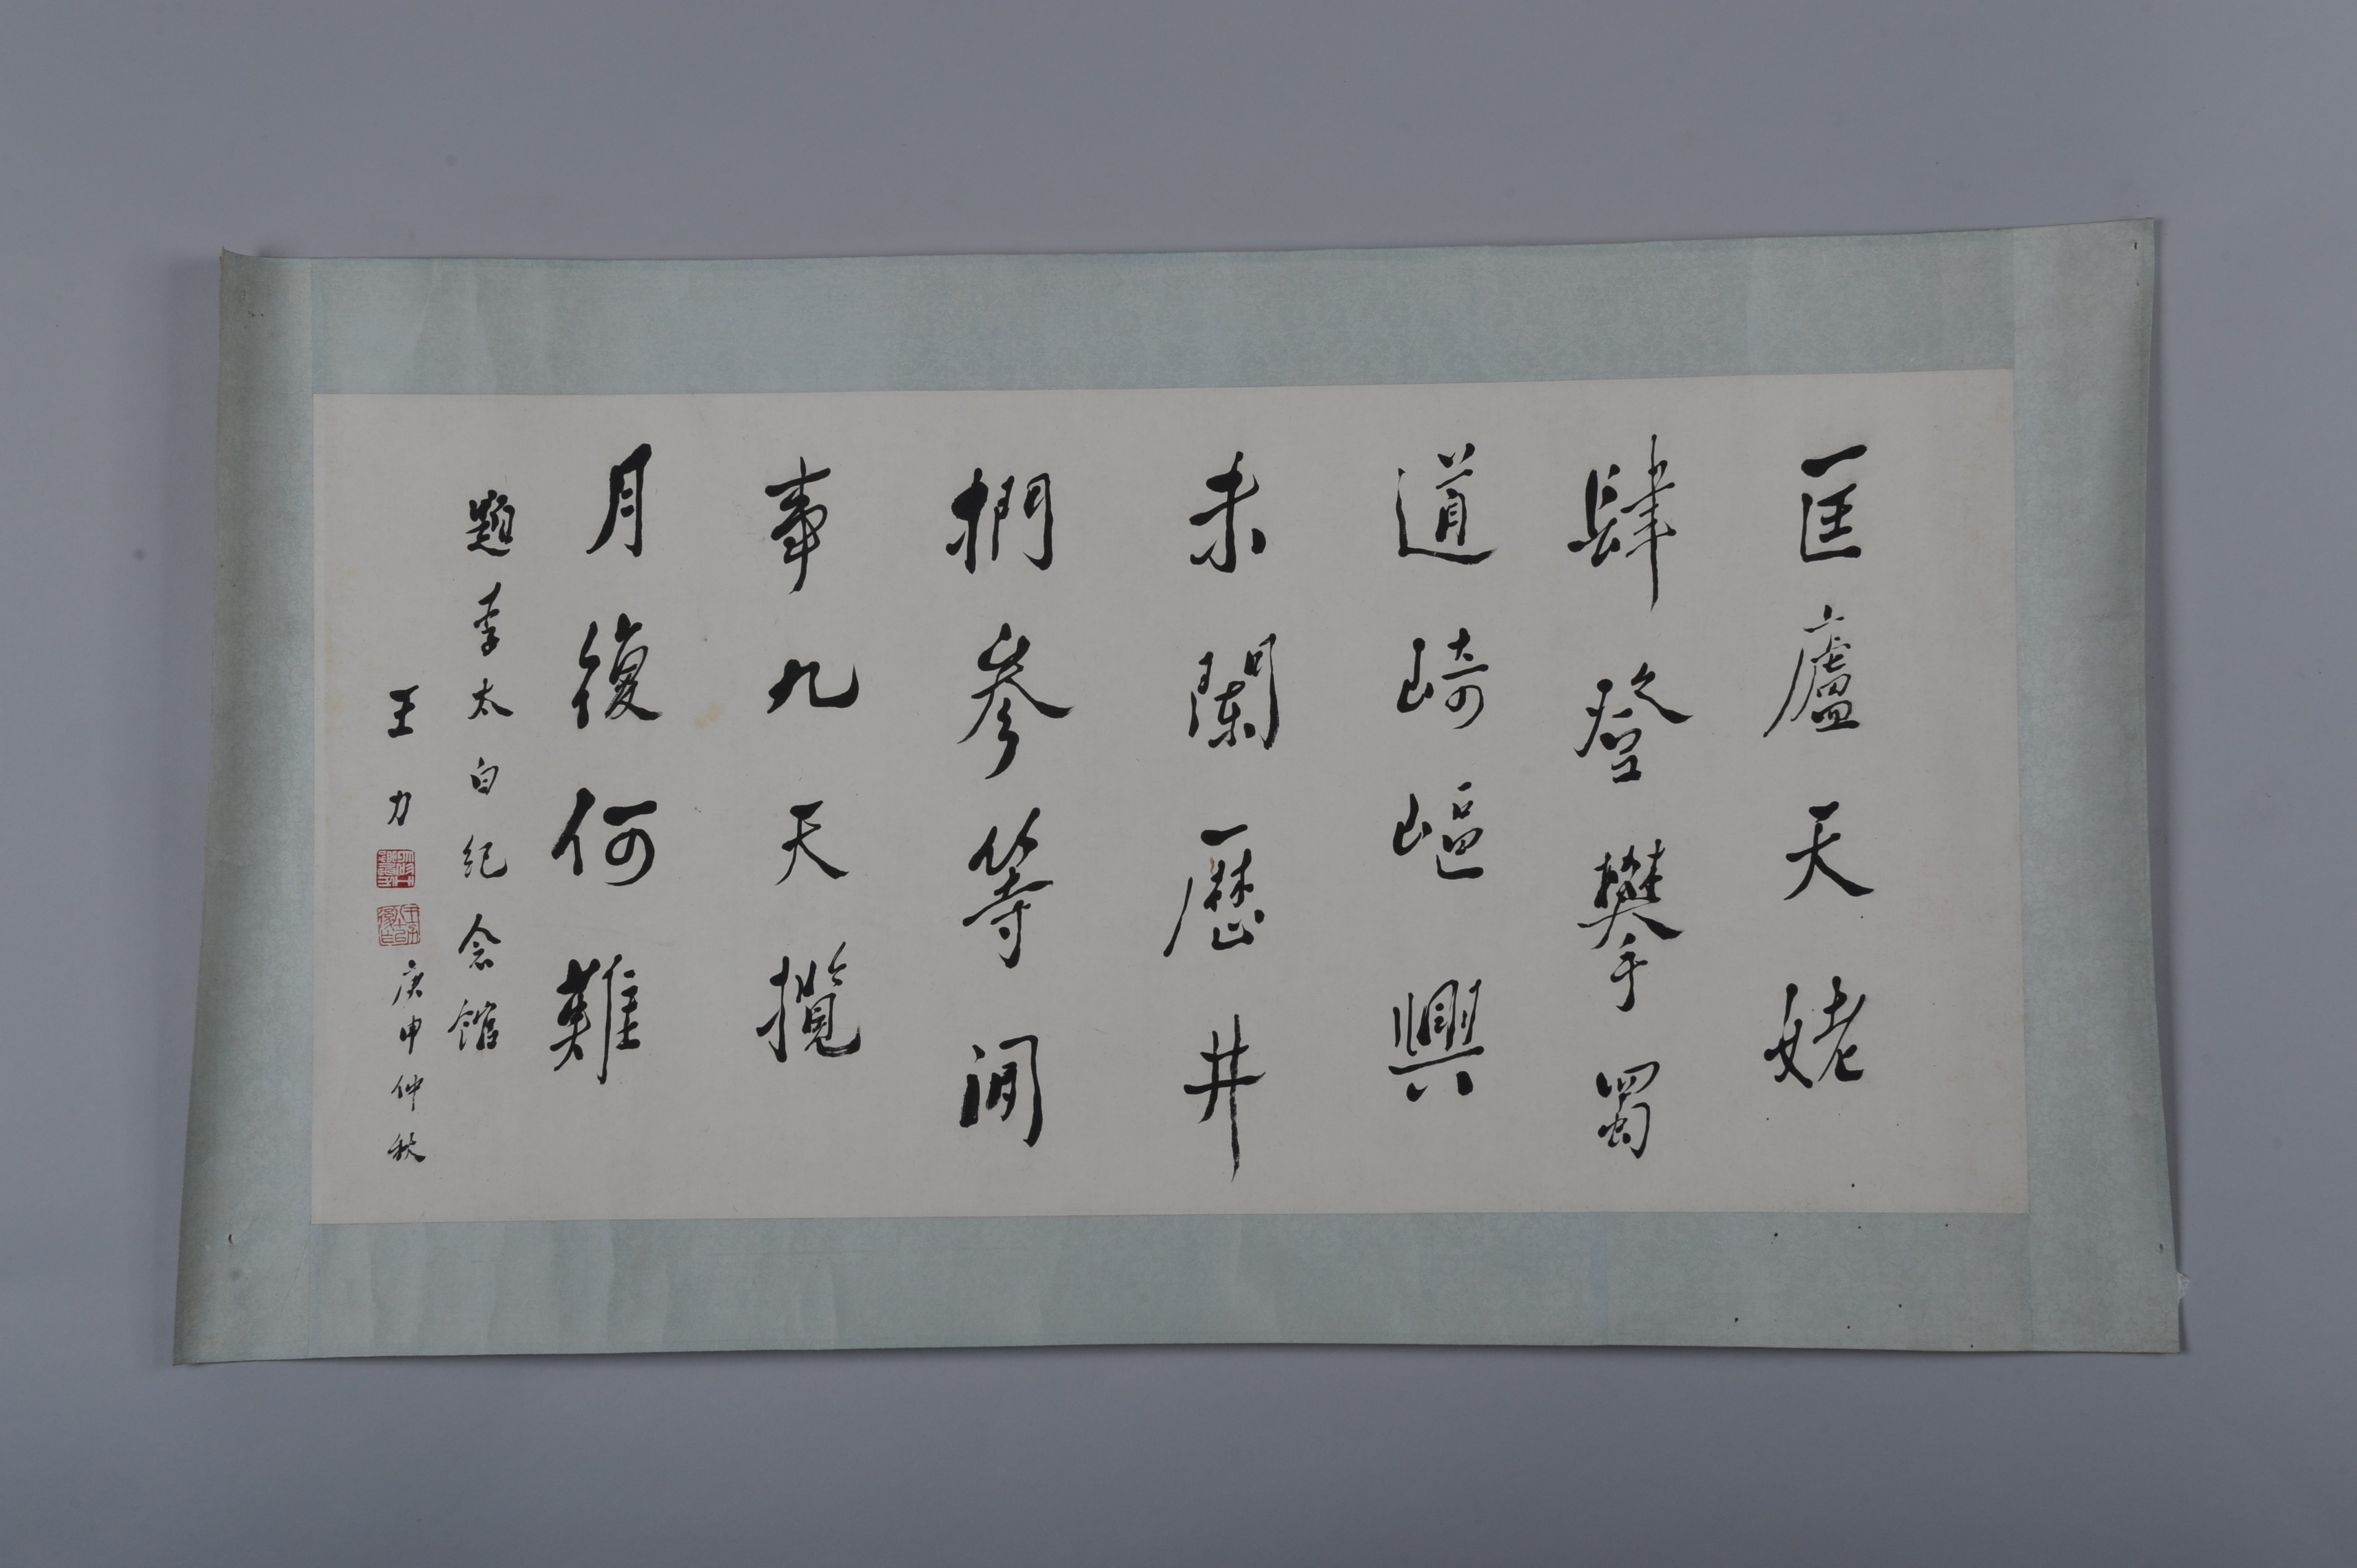 匡廬天姥
肆登攀蜀
道崎嶇興
未闌歷井
捫參等閒
事九天攬
月復何難
題李太白紀念館
王力
庚申仲秋